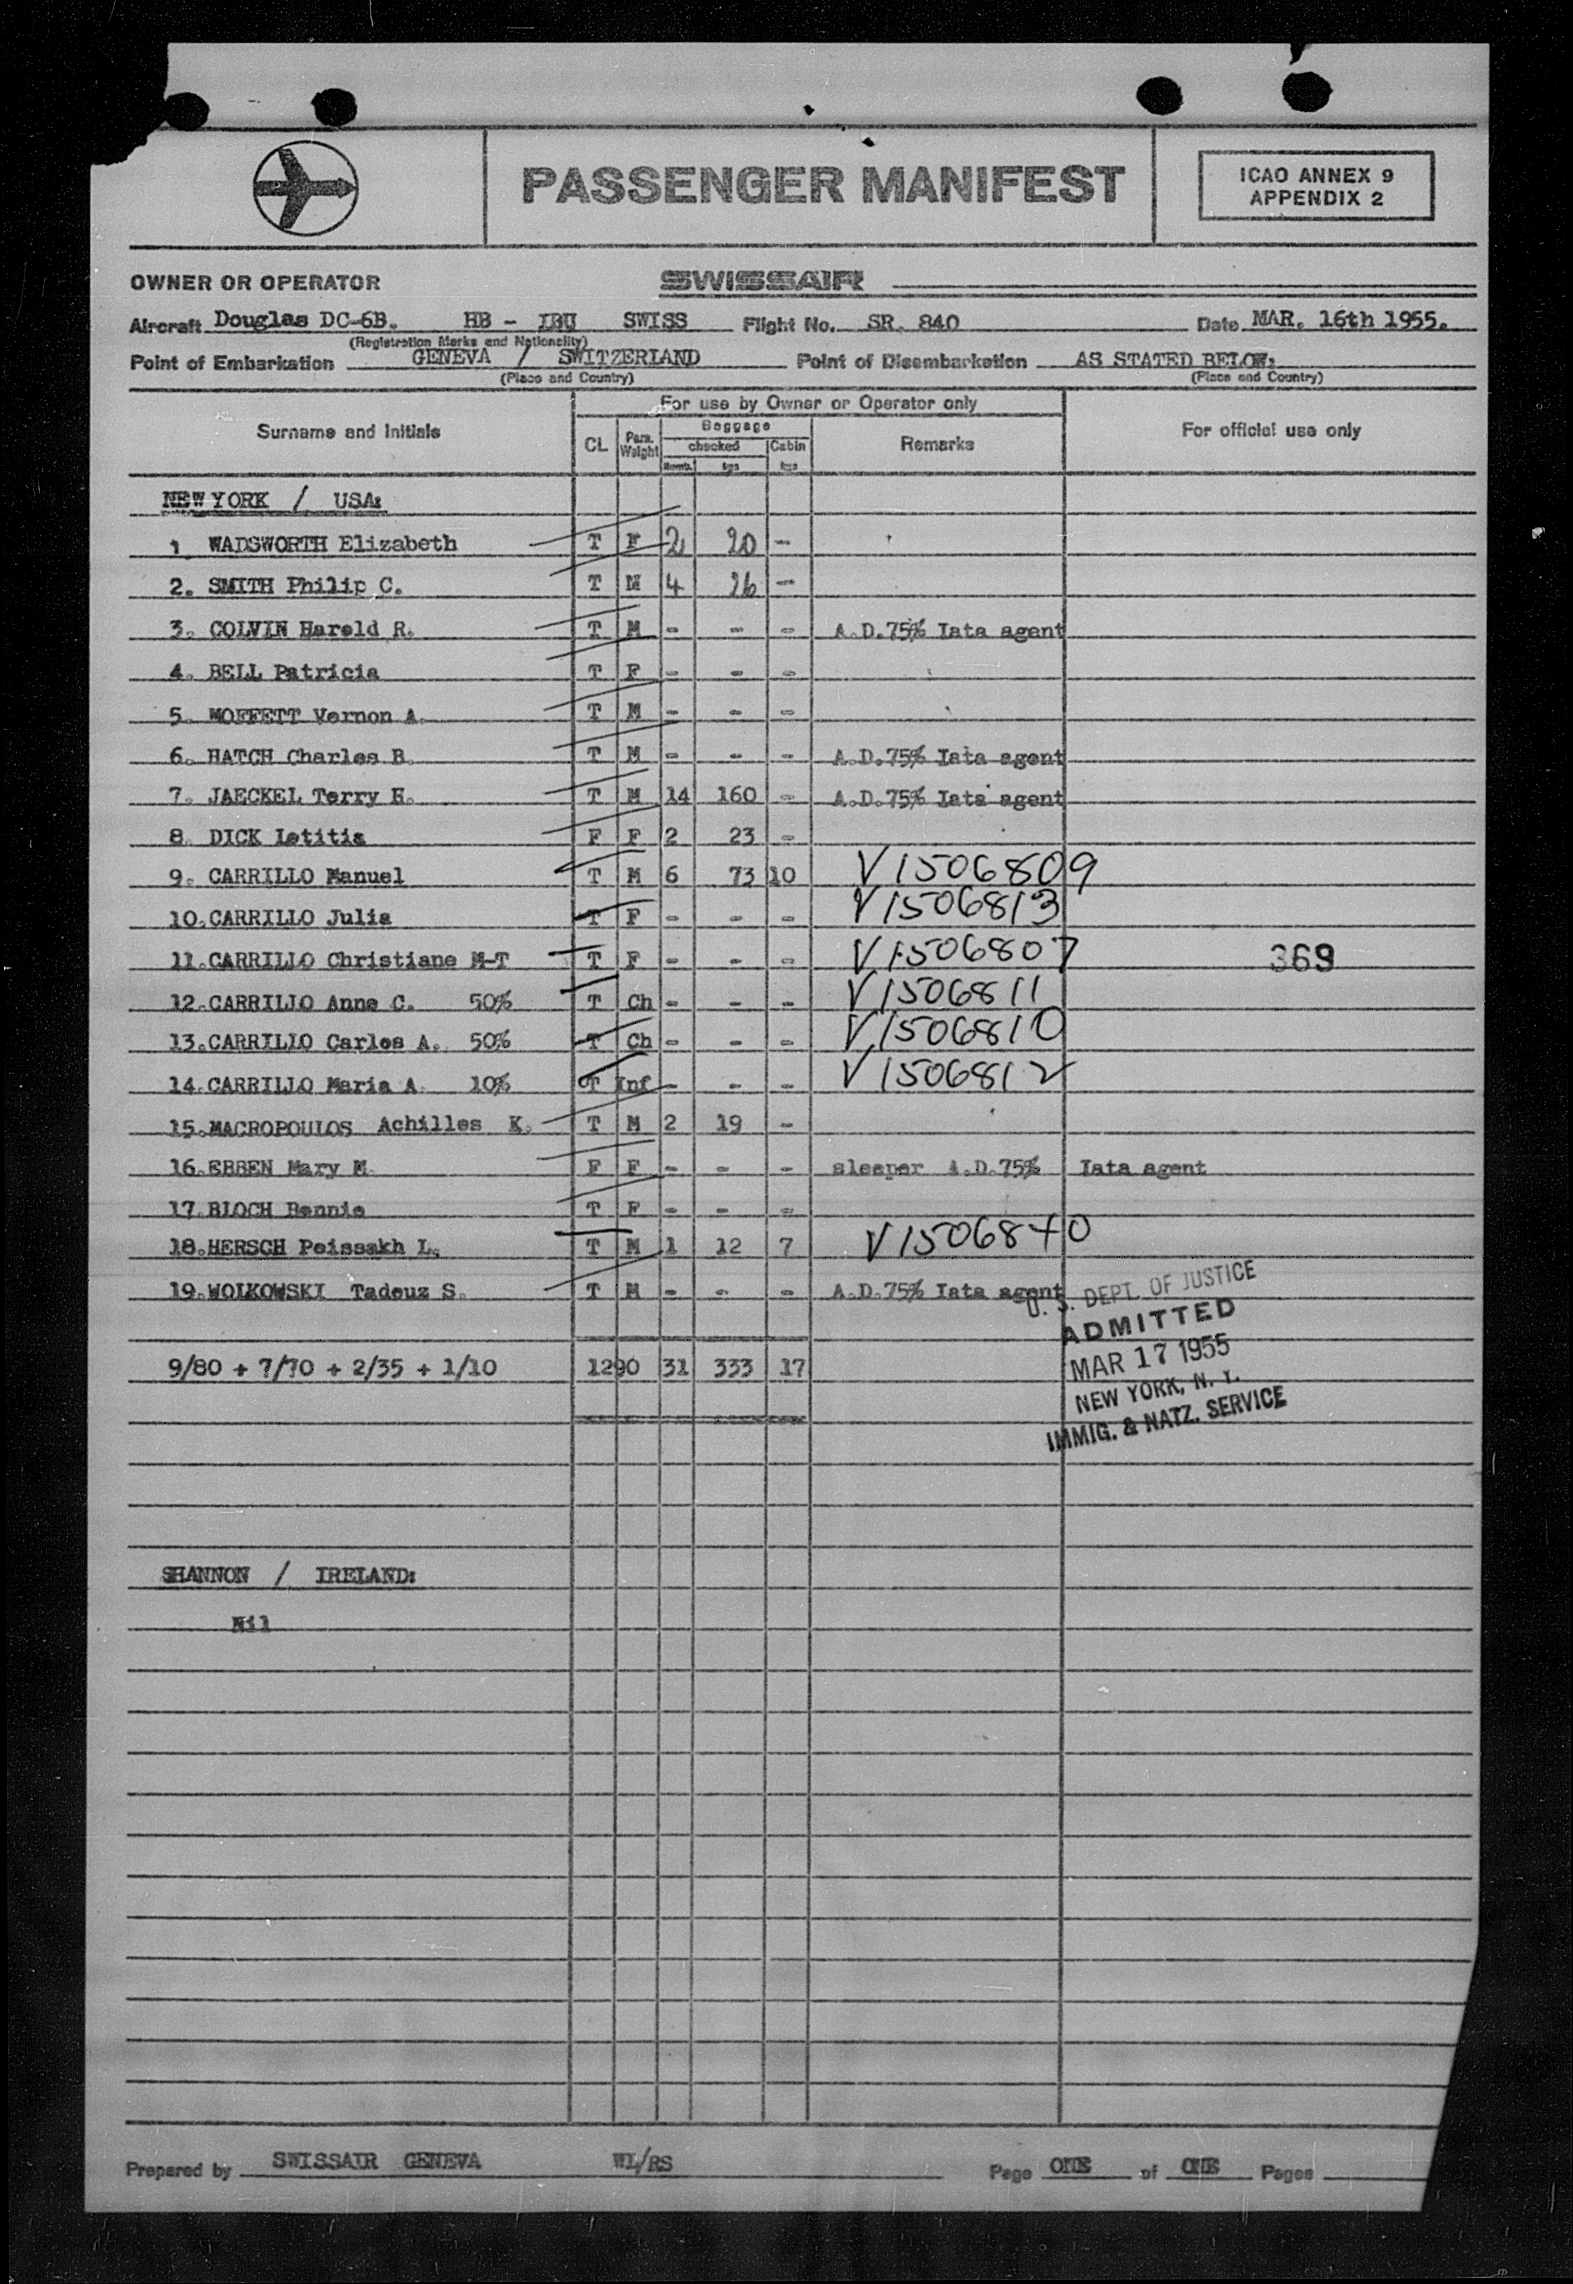 PASSENGER MANIFEST
ICAO ANNEX 9
APPENDIX 2
OWNER OR OPERATOR SWISSAIR
Aircraft Douglas DC-6B. HB - IBU SWISS Flight No. SR. 840 Date MAR. 16th 1955.
(Registration Marks and Nationality)
Point of Embarkation GENEVA / SWITZERLAND Point of Disembarkation AS STATED BELOW:
(Place and Country) (Place and Country)
For use by Owner or Operator only
Surname and Initials CL Pass. Weight Baggage checked Numb. kgs Cabin kgs Remarks For official use only
NEW YORK / USA:
1 WADSWORTH Elizabeth T F 2 20 -
2. SMITH Philip C. T M 4 26 -
3. COLVIN Harold R. T M - - - A.D.75% Iata agent
4. BELL Patricia T F - - -
5. MOFFETT Vernon A. T M - - -
6. HATCH Charles B. T M - - - A.D.75% Iata agent
7. JAECKEL Terry H. T M 14 160 - A.D.75% Iata agent
8. DICK Letitia F F 2 23 -
9. CARRILLO Manuel T M 6 73 10 V1506809
10.CARRILLO Julia T F - - - V1506813
11.CARRILLO Christiane M-T T F - - - V1506807 369
12.CARRILLO Anne C. 50% T Ch - - - V1506811
13.CARRILLO Carlos A. 50% T Ch - - - V1506810
14.CARRILLO Maria A. 10% T Inf - - - V1506812
15.MACROPOULOS Achilles K. T M 2 19 -
16.EBBEN Mary M. F F - - - sleeper A.D.75% Iata agent
17.BLOCH Bennie T F - - -
18.HERSCH Peissakh L. T M 1 12 7 V1506840
19.WOLKOWSKI Tadeuz S. T M - - - A.D.75% Iata agent
U. S. DEPT. OF JUSTICE
ADMITTED
MAR 17 1955
NEW YORK, N. Y.
IMMIG. & NATZ. SERVICE
9/80 + 7/70 + 2/35 + 1/10 1290 31 333 17
SHANNON / IRELAND:
Nil
Prepared by SWISSAIR GENEVA WL/RS Page ONE of ONE Pages